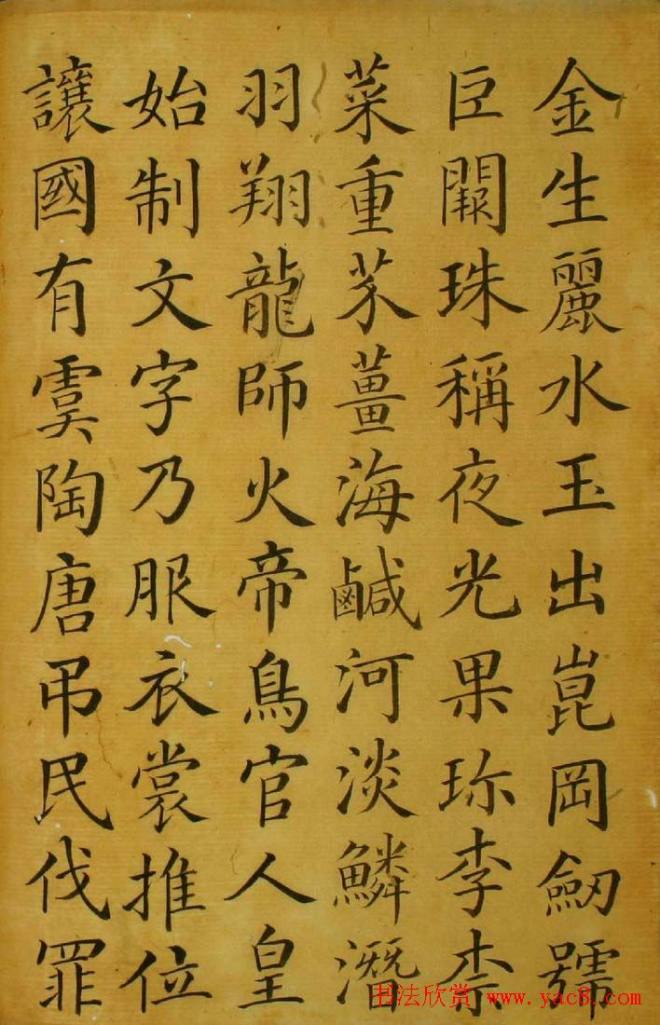 金生麗水玉出崑岡劒號
巨闕珠稱夜光果珎李柰
菜重芥薑海鹹河淡鱗潛
羽翔龍師火帝鳥官人皇
始制文字乃服衣裳推位
讓國有虞陶唐弔民伐罪
书法欣赏 www.yac8.com